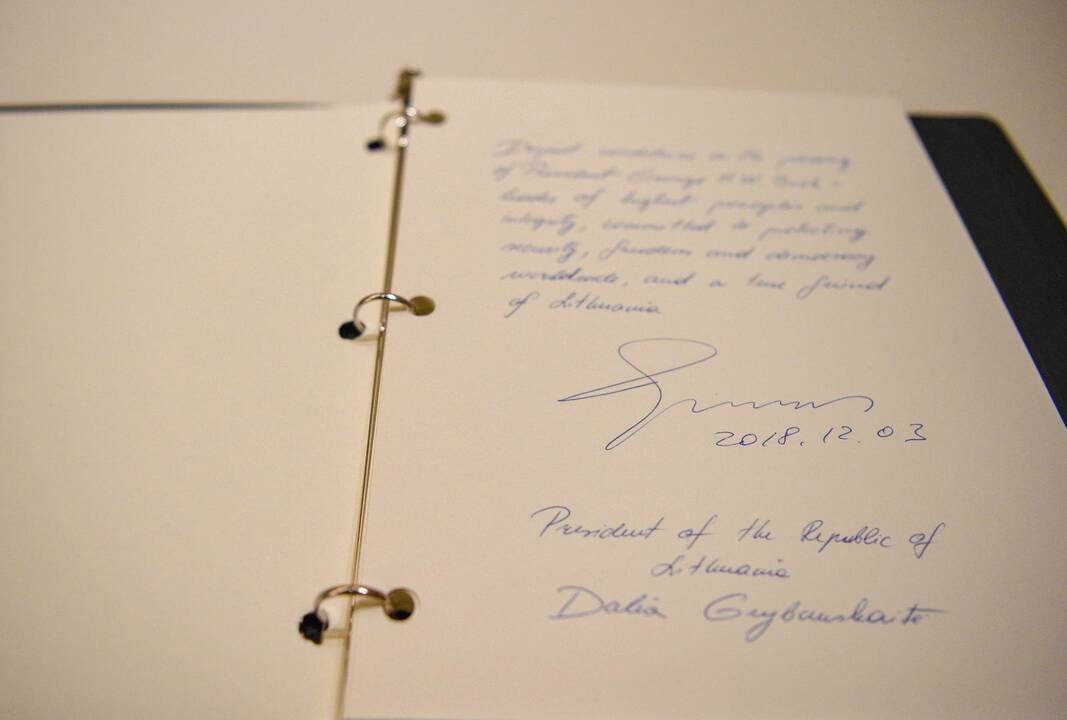 Deepest condolences on the passing
of President George H.W. Bush -
leader of highest principles and
integrity, committed to protecting
security, freedom and democracy
worldwide, and a true friend
of Lithuania
2018.12.03
President of the Republic of
Lithuania
Dalia Grybauskaitė